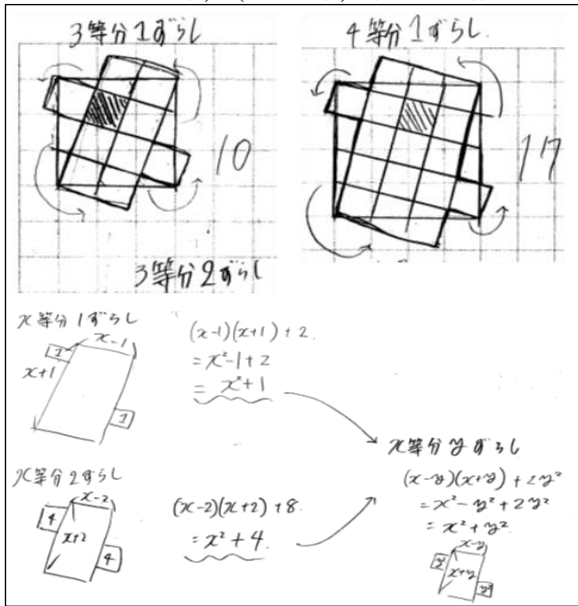 3等分1ずらし
4等分1ずらし.
10
17
3等分2ずらし
x等分1ずらし
x-1
x+1
(x-1)(x+1)+2.
=x²-1+2
=x²+1
x等分2ずらし
x-2
4
x+2
4
(x-2)(x+2)+8.
=x²+4.
x等分yずらし
(x-y)(x+y)+2y²
=x²-y²+2y²
=x²+y²
x-y
y²
x+y
y²